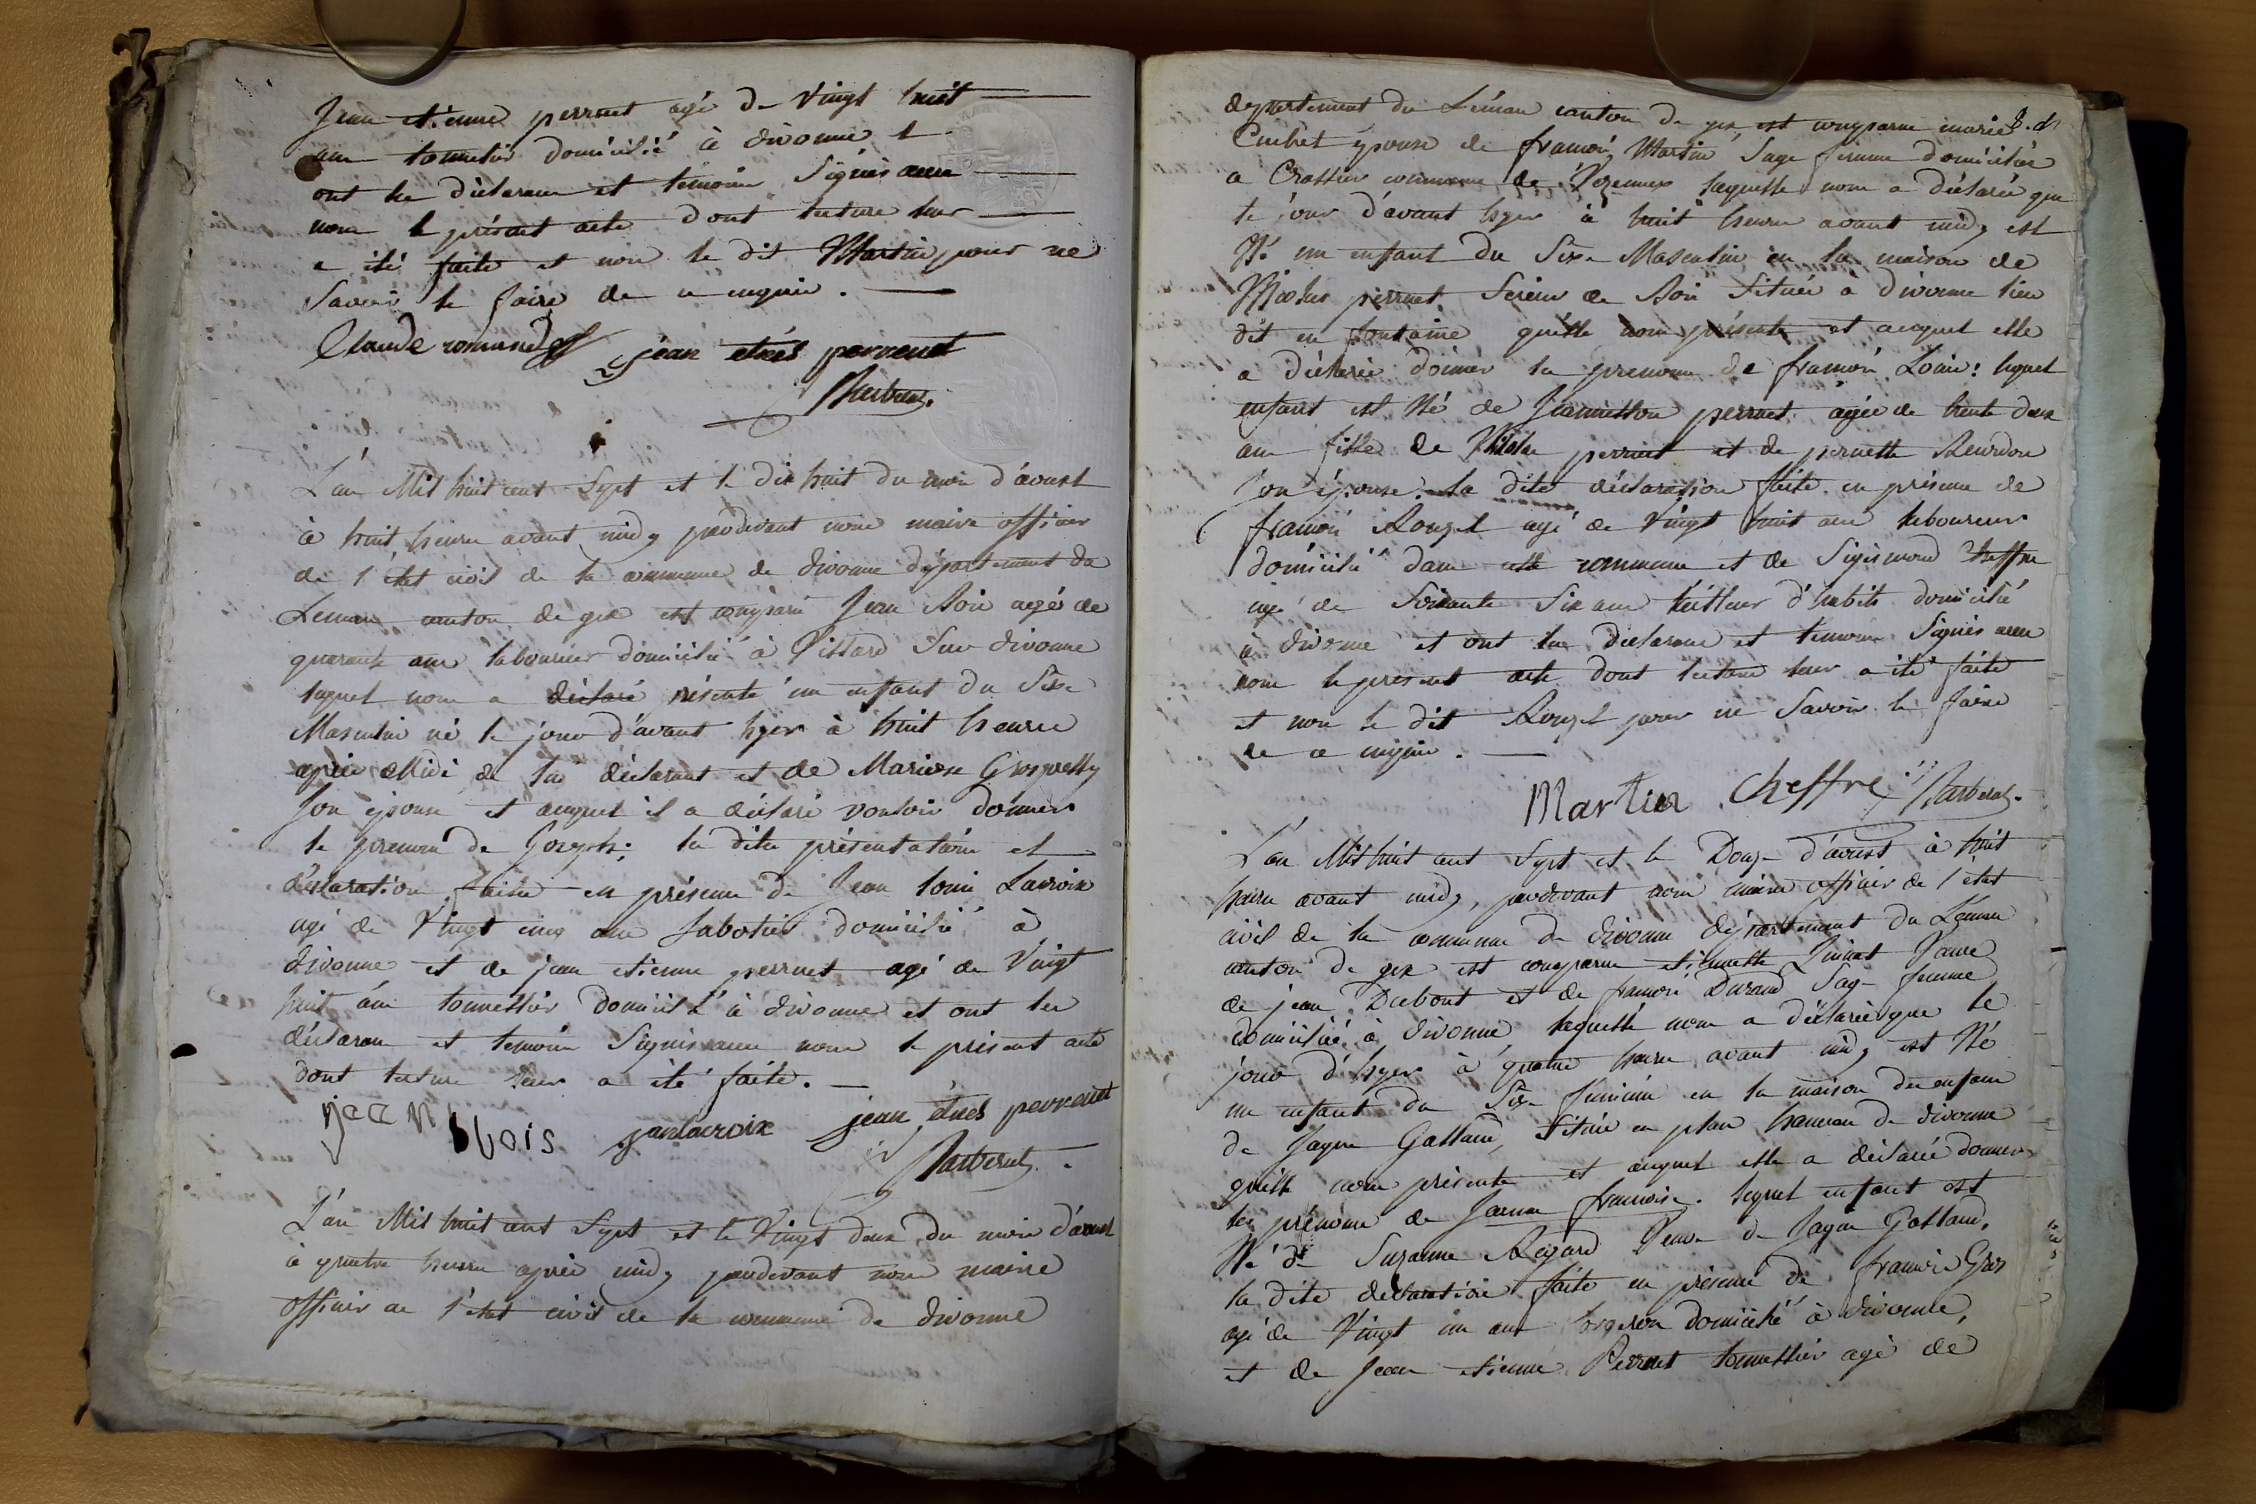 Jean etienne perrnet agé de vingt huit
ans tonnelier domicilié à divonne et
ont les déclarans et temoins Signés avec
nous le présent acte dont lecture leur
a été faite et non le dit Martin pour ne
Savoir le faire de ce enquis.
Claude romand jean etnés perrenet
Barberat.
L'an Mil huit cent Sept et le dix huit du mois d'avoust
à huit heures avant midy pardevant nous maire officier
de l'état civil de la commune de divonne département du
Leman canton de gex est comparu Jean Bois agé de
quarante ans laboureur domicilié à Villard Sur divonne
lequel nous a déclaré présenté un enfant du Sexe
Masculin né le jour d'avant hyer à huit heures
après Midi de lui déclarant et de Mariese Grospelly
Son épouse et auquel il a déclaré vouloir donner
le prenom de Joseph: la dite présentation et
déclaration faite en présence de Jean Louis Lacroix
agé de Vingt cinq ans Sabotier domicilié à
divonne et de jean etienne perrnet agé de Vingt
huit ans tonnellier domicilié à divonne et ont les
déclarans et temoins Signés avec nous le présent acte
dont lecture leur a été faite.
jean bois janlacroix jean etnes perrenet
Barberat.
L'an Mil huit cent Sept et le Vingt deux du mois d'avoust
à quatre heures après midy pardevant nous maire
officier de l'état civil de la commune de divonne
departement du Léman canton de gex est comparue marie
Cuchet épouse de francois Martin Sage femme domiciliée
a Crassier commune de laquelle nous a déclaré que
le jour d'avant hyer à huit heures avant midy est
Né un enfant du Sexe Masculin en la maison de
Nicolas perrnet Scieur de Bois Située à divonne lieu
dit en fontaine qu'elle nous présente et auquel elle
a déclaré donner les prenoms de francois Louis: lequel
enfant est Né de Jeannetton perrnet agée de trente deux
ans fille de Nicolas perrnet et de pernette
Son épouse: la dite déclaration faite en présence de
francois Rouzet agé de Vingt huit ans laboureur
domicilié dans cette commune et de Sigismond Cheffre
agé de Soixante Six ans tailleur d'habits domicilié
à divonne et ont les déclarans et temoins Signés avec
nous le present acte dont lecture leur a été faite
et non le dit Rouzet pour ne Savoir le faire
de ce enquis.
Martin Cheffre Barberat.
L'an Mil huit cent Sept et le Douze d'avoust à huit
heures avant midy, pardevant nous maire officier de l'état
civil de la commune de divonne département du Léman
canton de gex est comparue etiennette Veuve
de jean Dubout et de francois Durand Sage femme
domiciliée à divonne, laquelle nous a déclarée que le
jour d'hyer à quatre heures avant midy est Né
un enfant du Sexe feminin en la maison des enfans
de Jaque Galland, Située en plan hameau de divonne
qu'elle nous présente et auquel elle a déclarée donner
les prénoms de Jeanne francoise. lequel enfant est
Né de Suzanne Regard Veuve de Jaque Galland.
la dite déclaration faite en présence de francois Gros
agé de Vingt un ans forgeron domicilié à divonne,
et de Jean etienne Perrnet tonnellier agé de